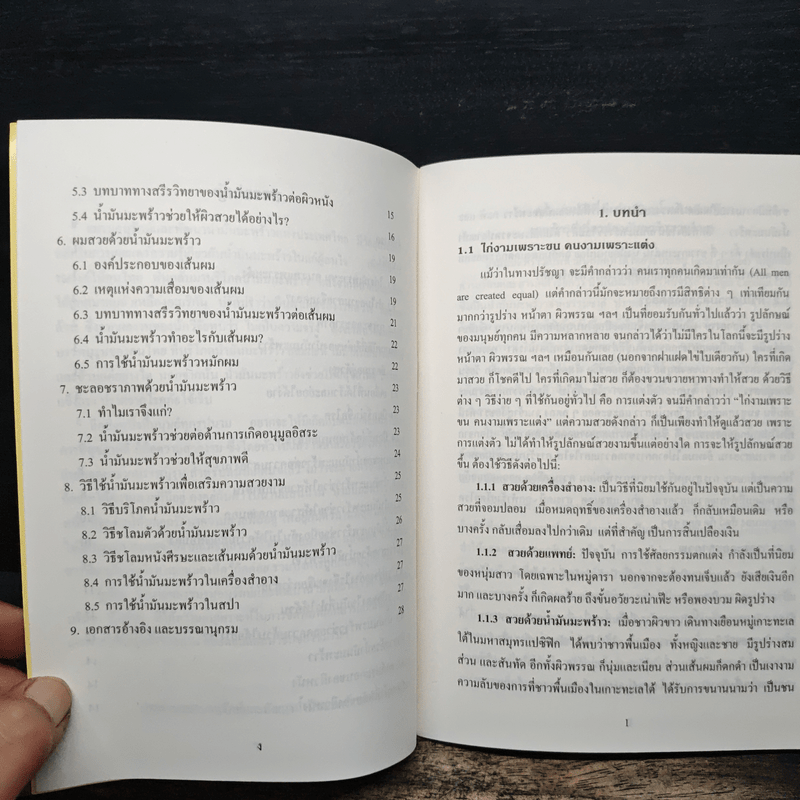 5.3 บทบาททางสรีรวิทยาของน้ำมันมะพร้าวต่อผิวหนัง
5.4 น้ำมันมะพร้าวช่วยให้ผิวสวยได้อย่างไร? 15
6. ผมสวยด้วยน้ำมันมะพร้าว 16
6.1 องค์ประกอบของเส้นผม 19
6.2 เหตุแห่งความเสื่อมของเส้นผม 19
6.3 บทบาททางสรีรวิทยาของน้ำมันมะพร้าวต่อเส้นผม 19
6.4 น้ำมันมะพร้าวทำอะไรกับเส้นผม? 21
6.5 การใช้น้ำมันมะพร้าวหมักผม 22
7. ชะลอชราภาพด้วยน้ำมันมะพร้าว 22
7.1 ทำไมเราจึงแก่? 23
7.2 น้ำมันมะพร้าวช่วยต่อต้านการเกิดอนุมูลอิสระ 23
7.3 น้ำมันมะพร้าวช่วยให้สุขภาพดี 23
8. วิธีใช้น้ำมันมะพร้าวเพื่อเสริมความสวยงาม 24
8.1 วิธีบริโภคน้ำมันมะพร้าว 25
8.2 วิธีชโลมตัวด้วยน้ำมันมะพร้าว 25
8.3 วิธีชโลมหนังศีรษะและเส้นผมด้วยน้ำมันมะพร้าว 26
8.4 การใช้น้ำมันมะพร้าวในเครื่องสำอาง 27
8.5 การใช้น้ำมันมะพร้าวในสปา 27
9. เอกสารอ้างอิง และบรรณานุกรม 28
ง
1. บทนำ
1.1 ไก่งามเพราะขน คนงามเพราะแต่ง
แม้ว่าในทางปรัชญา จะมีคำกล่าวว่า คนเราทุกคนเกิดมาเท่ากัน (All men
are created equal) แต่คำกล่าวนี้มักจะหมายถึงการมีสิทธิต่าง ๆ เท่าเทียมกัน
มากกว่ารูปร่าง หน้าตา ผิวพรรณ ฯลฯ เป็นที่ยอมรับกันทั่วไปแล้วว่า รูปลักษณ์
ของมนุษย์ทุกคน มีความหลากหลาย จนกล่าวได้ว่าไม่มีใครในโลกนี้จะมีรูปร่าง
หน้าตา ผิวพรรณ ฯลฯ เหมือนกันเลย (นอกจากฝาแฝดไข่ใบเดียวกัน) ใครที่เกิด
มาสวย ก็โชคดีไป ใครที่เกิดมาไม่สวย ก็ต้องขวนขวายหาทางทำให้สวย ด้วยวิธี
ต่าง ๆ วิธีง่าย ๆ ที่ใช้กันอยู่ทั่วไป คือ การแต่งตัว จนมีคำกล่าวว่า “ไก่งามเพราะ
ขน คนงามเพราะแต่ง” แต่ความสวยดังกล่าว ก็เป็นเพียงทำให้ดูแล้วสวย เพราะ
การแต่งตัว ไม่ได้ทำให้รูปลักษณ์สวยงามขึ้นแต่อย่างใด การจะให้รูปลักษณ์สวย
ขึ้น ต้องใช้วิธีดังต่อไปนี้:
1.1.1 สวยด้วยเครื่องสำอาง: เป็นวิธีที่นิยมใช้กันอยู่ในปัจจุบัน แต่เป็นความ
สวยที่จอมปลอม เมื่อหมดฤทธิ์ของเครื่องสำอางแล้ว ก็กลับเหมือนเดิม หรือ
บางครั้ง กลับเสื่อมลงไปกว่าเดิม แต่ที่สำคัญ เป็นการสิ้นเปลืองเงิน
1.1.2 สวยด้วยแพทย์: ปัจจุบัน การใช้ศัลยกรรมตกแต่ง กำลังเป็นที่นิยม
ของหนุ่มสาว โดยเฉพาะในหมู่ดารา นอกจากจะต้องทนเจ็บแล้ว ยังเสียเงินอีก
มาก และบางครั้ง ก็เกิดผลร้าย ถึงขั้นอวัยวะเน่าเฟะ หรือพองบวม ผิดรูปร่าง
1.1.3 สวยด้วยน้ำมันมะพร้าว: เมื่อชาวผิวขาว เดินทางเยือนหมู่เกาะทะเล
ใต้ในมหาสมุทรแปซิฟิก ได้พบว่าชาวพื้นเมือง ทั้งหญิงและชาย มีรูปร่างสม
ส่วน และสันทัด อีกทั้งผิวพรรณ ก็นุ่มและเนียน ส่วนเส้นผมก็ดกดำ เป็นเงางาม
ความลับของการที่ชาวพื้นเมืองในเกาะทะเลใต้ ได้รับการขนานนามว่า เป็นชน
1